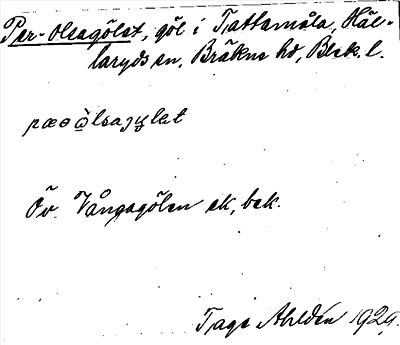 Per-Olsagölet, göl i Tattamåla, Häl-
laryds sn, Bräkne hd, Blek. l.
pæɵ ὼlsajy̨lat
Öv. Vångagölen ek, bek.
Tage Ahldén 1929.